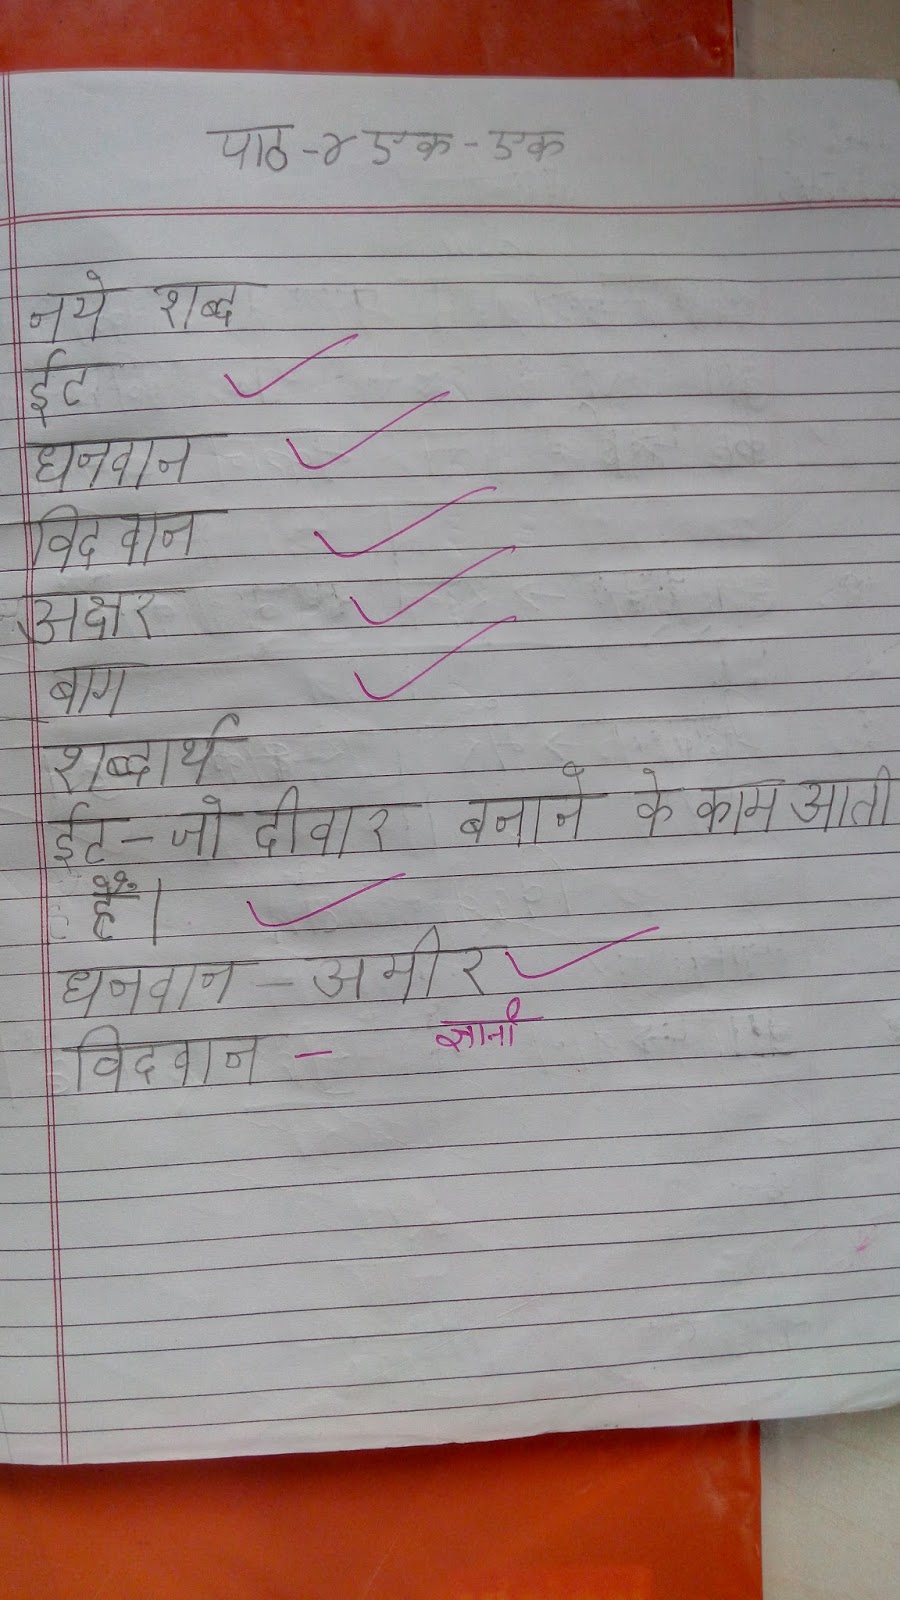 पाठ-४ एक-एक
नये शब्द
ईट
धनवान
विदवान
अक्षर
बाग
शब्दार्थ
ईट-जो दीवार बनाने के काम आती
है।
धनवान - अमीर
विदवान - ज्ञानी